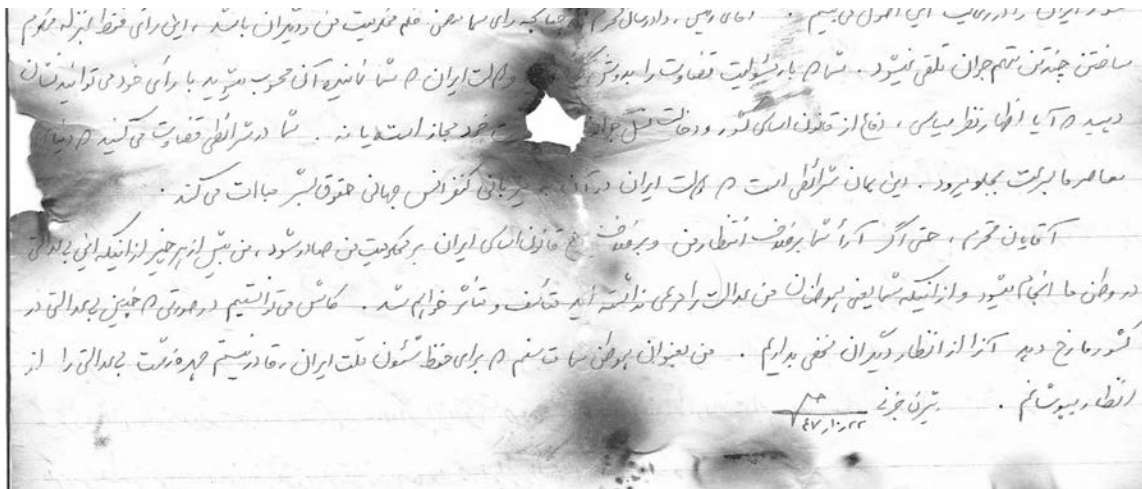 کشور ایران را در رعایت این اصول می‌بینم . آقای رئیس ، دادرسان محترم چنانچه رأی شما متضمن حکم محکومیت من و دیگران باشد ، این رأی فقط بمنزله محکوم
ساختن چند تن متهم جوان تلقی نمیشود . شما که بار مسئولیت قضاوت را بدوش ملت ایران که شما نماینده آن محسوب میشوید با رأی خود می‌توانید نشان
دهید که آیا اظهار نظر سیاسی ، دفاع از قانون اساسی کشور و دخالت نسل جوان خود مجاز است یا نه . شما در شرائطی قضاوت می‌کنید که دنیای
معاصر ما بسرعت بجلو میرود . این همان شرائطی است که دولت ایران در آن به میزبانی کنفرانس جهانی حقوق بشر مباهات می کند .
آقایان محترم ، حتی اگر آراء شما برخلاف انتظار من و برخلاف قانون اساسی ایران بر محکومیت من صادر شود ، من بیش از هر چیز از اینکه این بی‌عدالتی
در وطن ما انجام میشود و از اینکه شما یعنی هموطنان من عدالت را مرعی نداشته اید متأسف و متأثر خواهم شد . کاش می توانستیم در صورتی که چنین بی‌عدالتی در
کشور ما رخ دهد آنرا از انظار دیگران مخفی بداریم . من بعنوان هموطن شما متأسفم که برای حفظ شئون ملت ایران ، قادر نیستم چهره زشت بی‌عدالتی را از
انظار بپوشانم . بیژن جزنی ۴۷